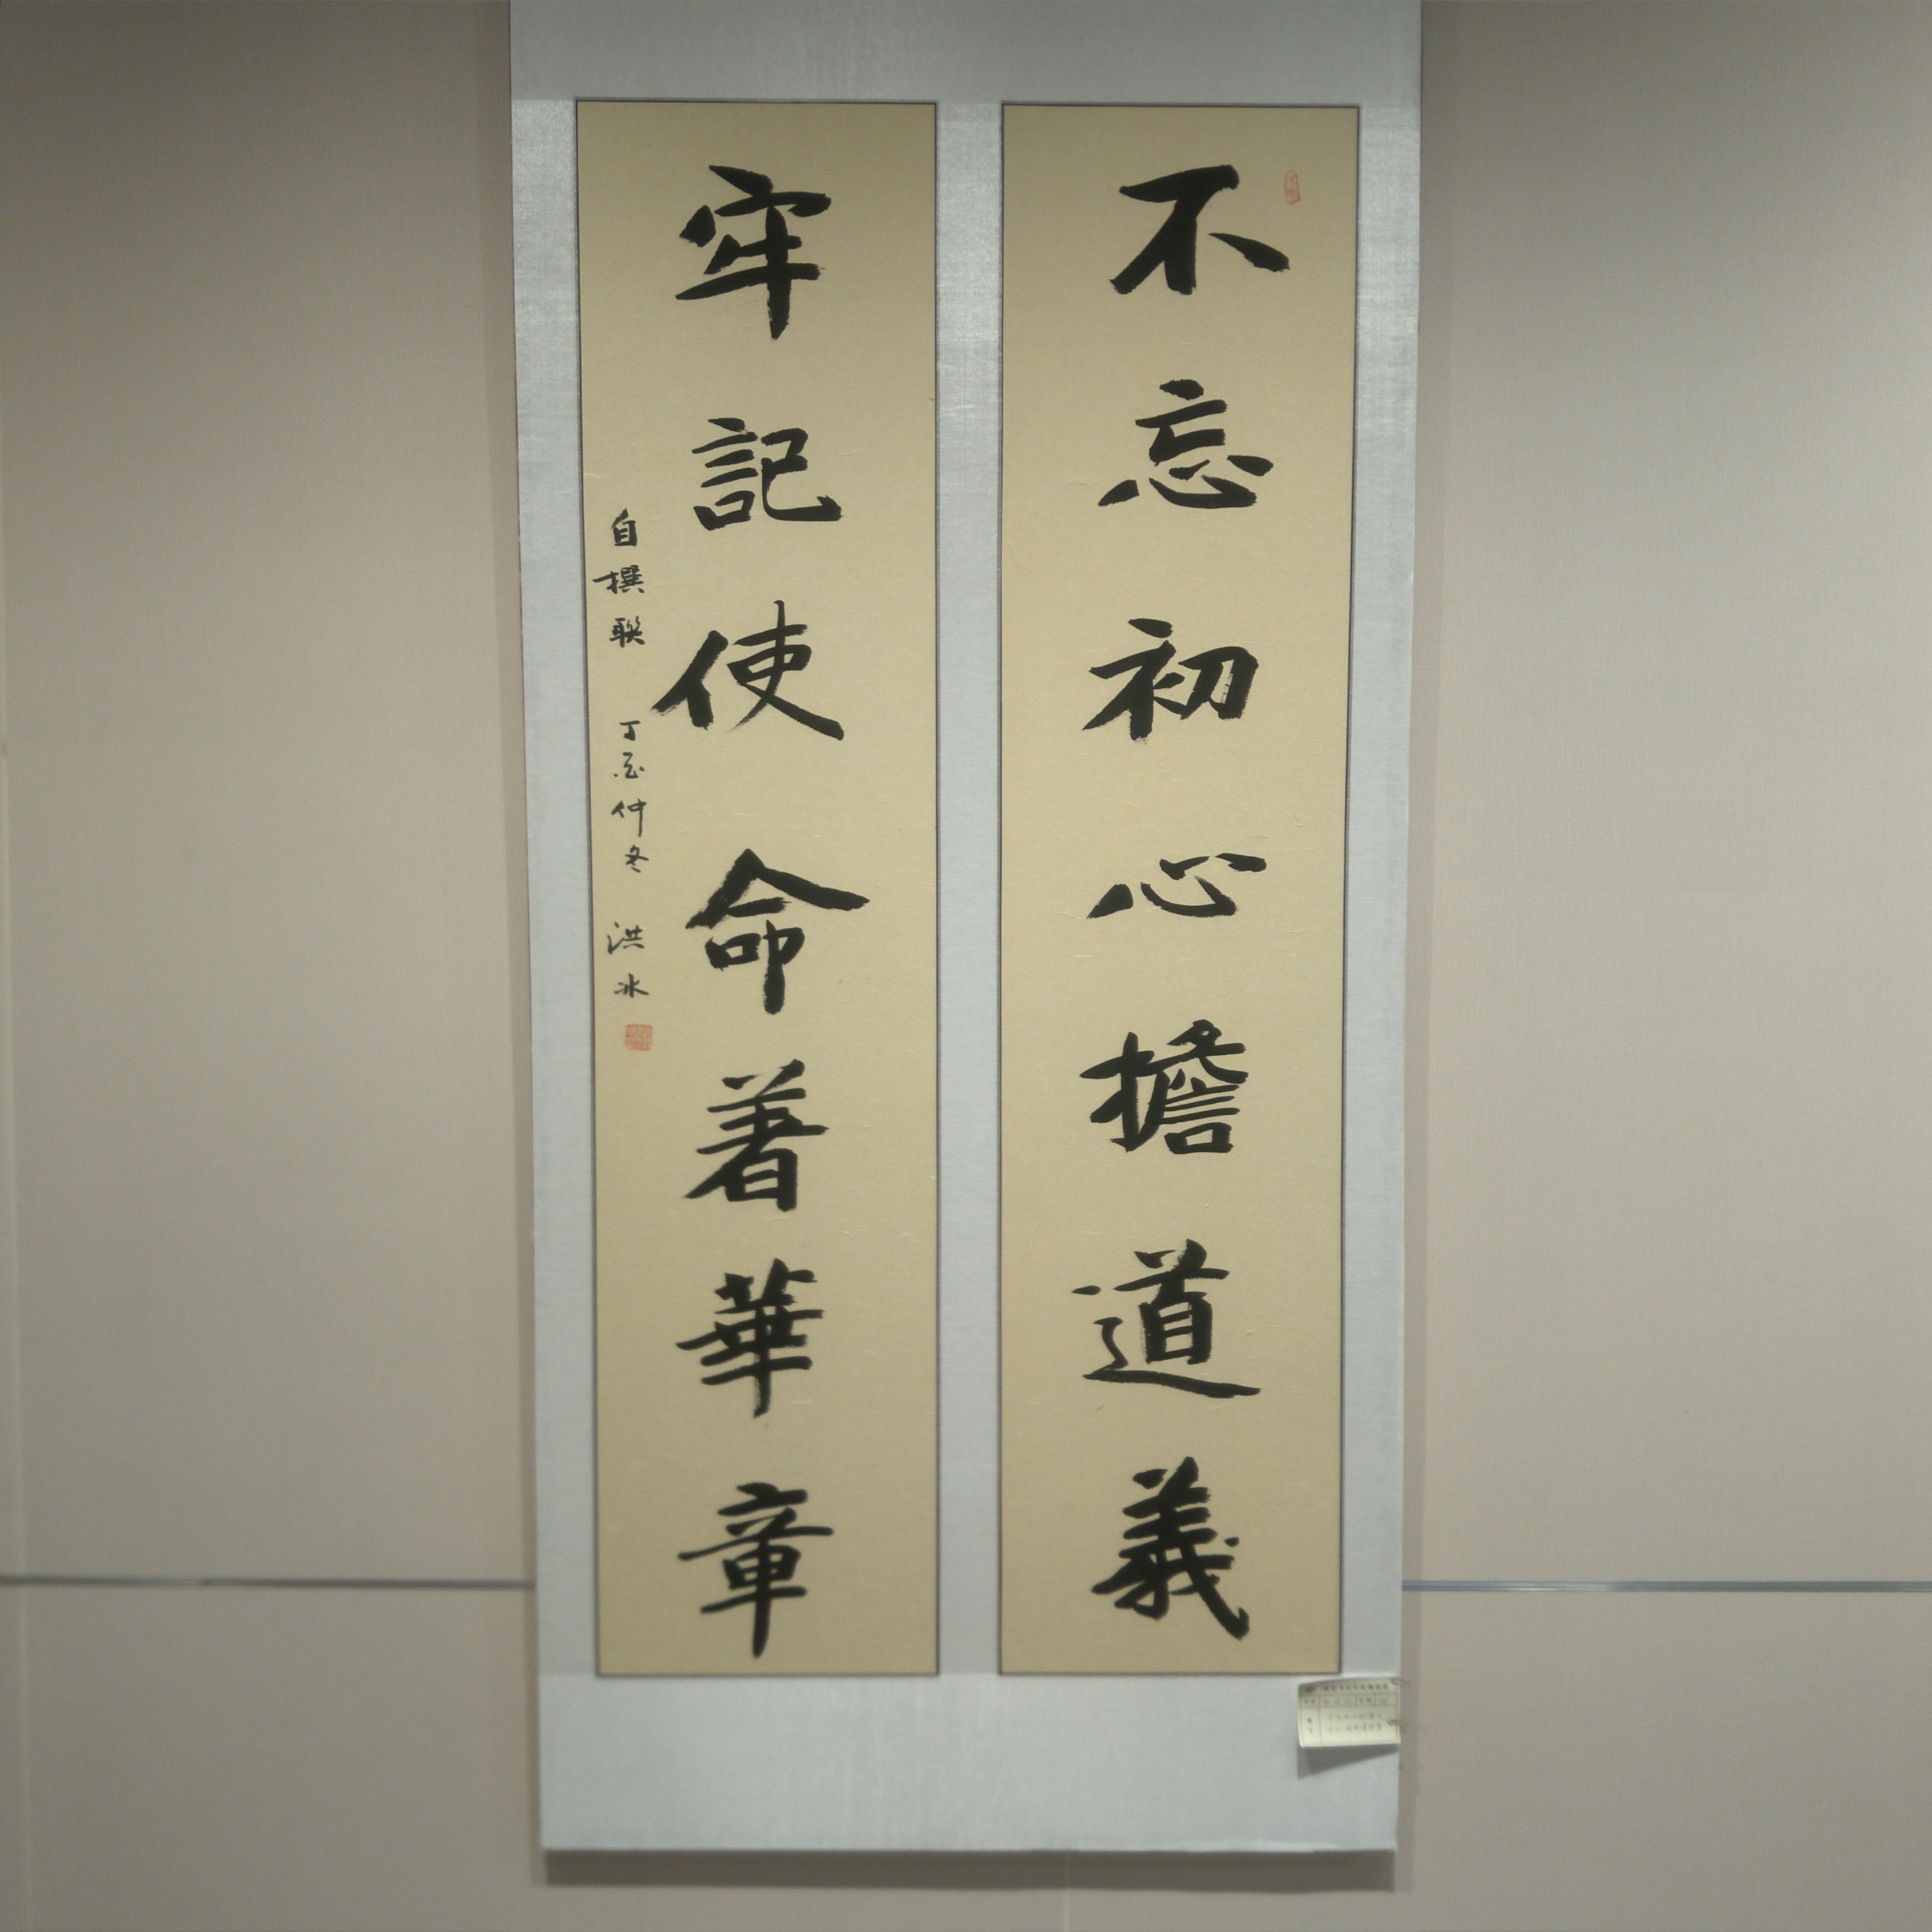 不忘初心擔道義
牢記使命著華章
自撰聯 丁酉仲冬 洪冰